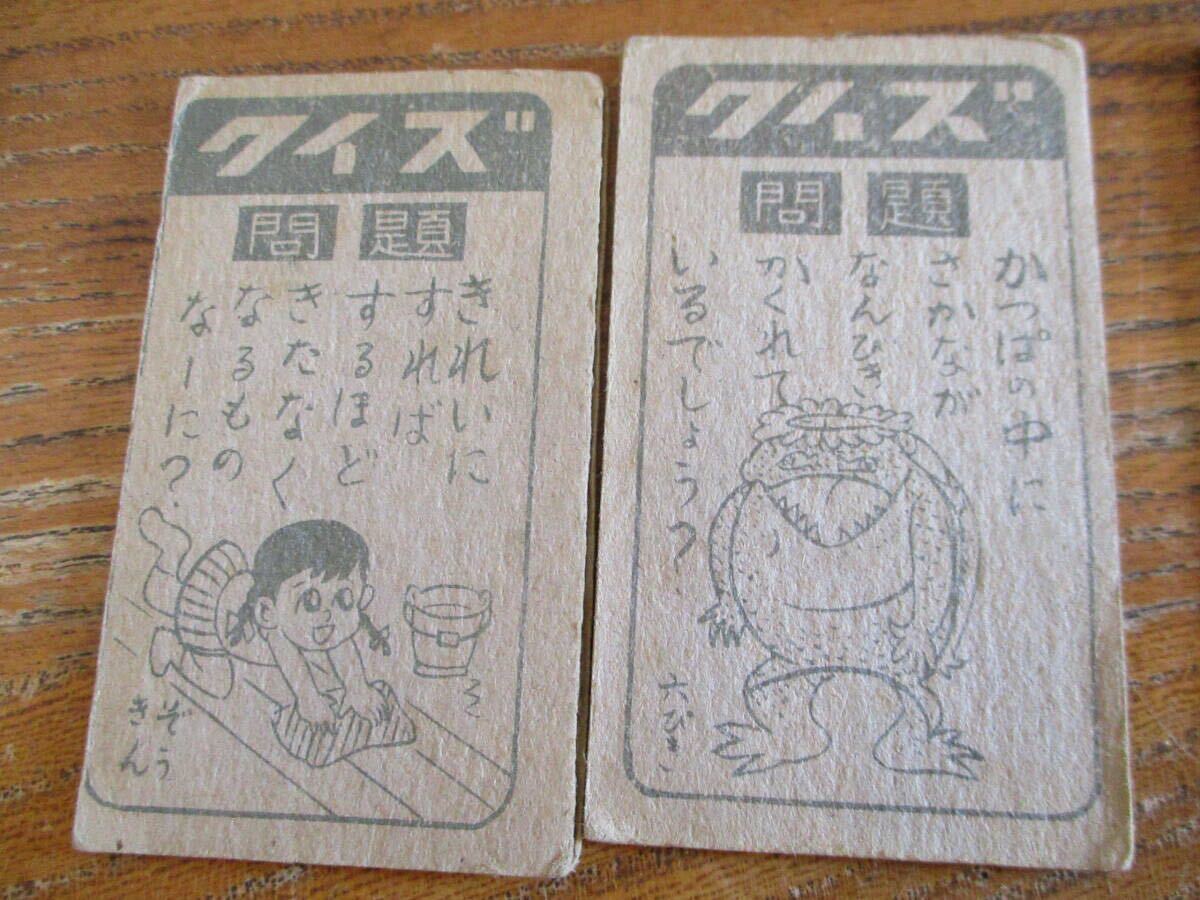 クイズ
問題
きれいに
すれば
するほど
きたなく
なるもの
なーに?
ぞう
きん
クイズ
問題
かっぱの中に
さかなが
なんびき
かくれて
いるでしょう?
六ぴき